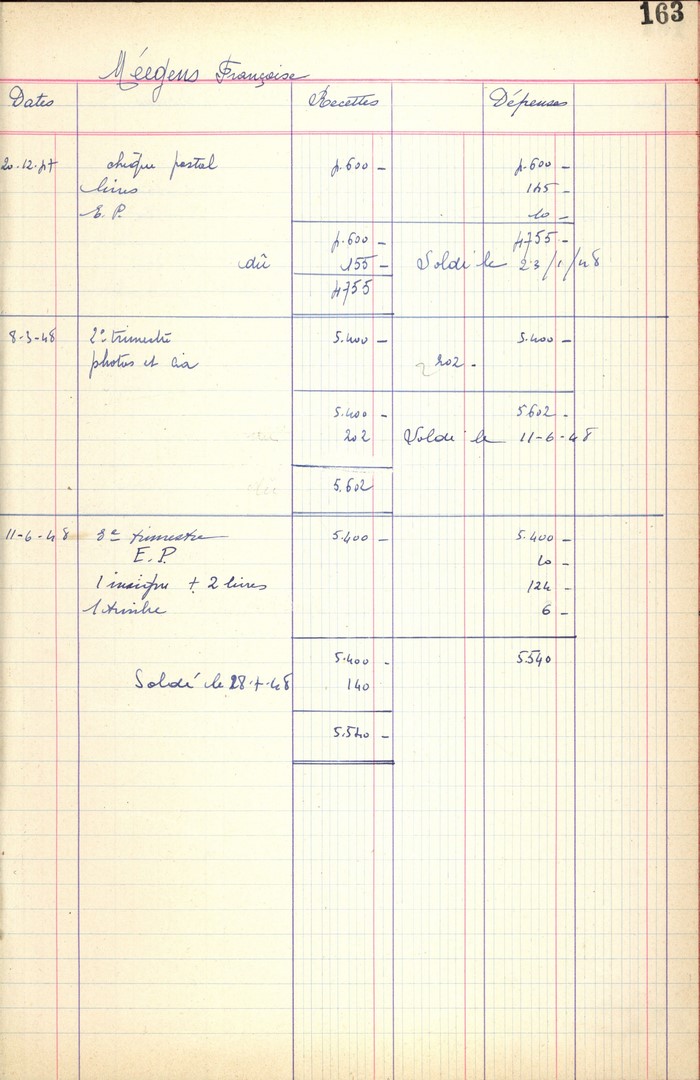 163
Méegens Françoise
Dates Recettes Dépenses
20-12-47 chèque postal 4.600 - 4.600 -
livres 145 -
E.P. 10 -
4.600 - 4755 -
dû 155 - Soldé le 23/1/48
4755
8-3-48 2e trimestre 5.400 - 5.400 -
photos et 202 -
5.400 - 5.602 -
202 Soldé le 11-6-48
5.602
11-6-48 3e trimestre 5.400 - 5.400 -
E.P. 10 -
1 insigne + 2 livres 124 -
1 timbre 6 -
5.400 - 5.540
Soldé le 28-7-48 140
5.540 -